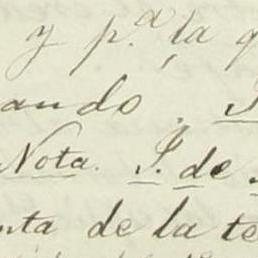 y p.ª la q
ando.
Nota. J. de
nta de la te